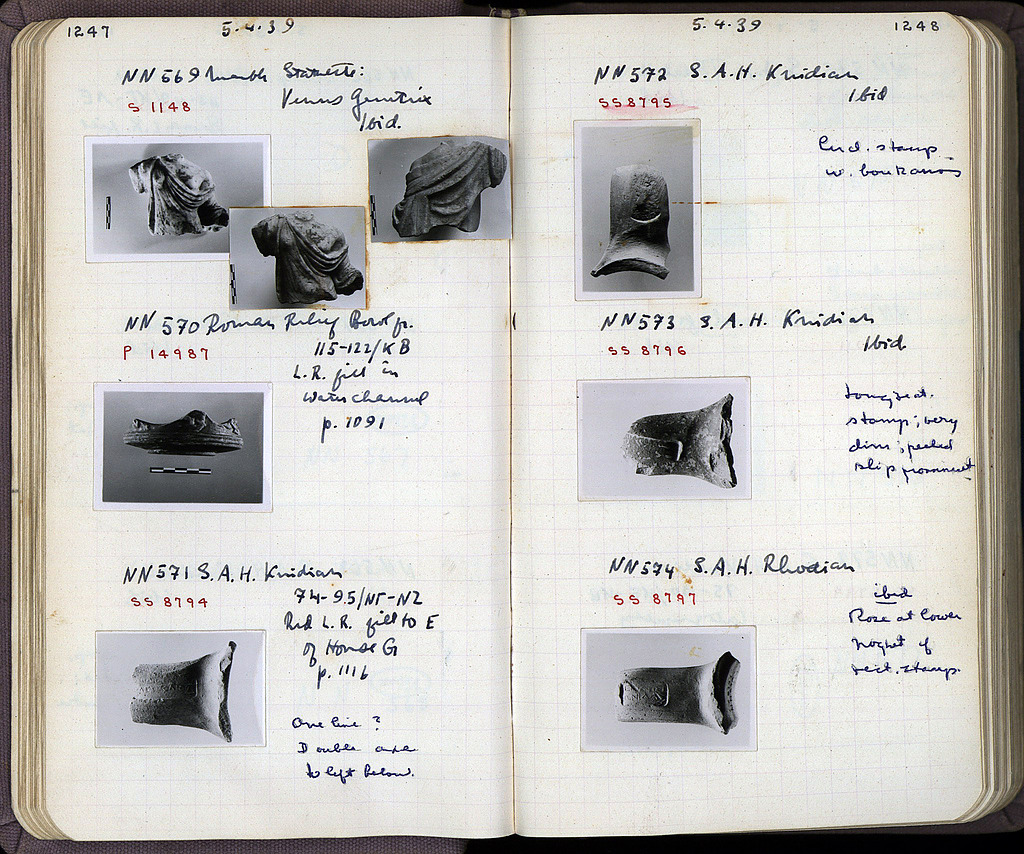 1247
5.4.39
NN 569 Marble Statuette:
S 1148
Venus Genetrix
Ibid.
NN 570 Roman Relief Bowl fr.
P 14987
115-122/KB
L.R. fill in
water channel
p. 1091
NN 571 S.A.H. Knidian
SS 8794
74-95/NΓ-NZ
Red L.R. fill to E
of House G
p. 1116
One line?
Double axe
to left below.
5.4.39
1248
NN 572 S.A.H. Knidian
SS 8795
Ibid
Circ. stamp
w. boukranos
NN 573 S.A.H. Knidian
SS 8796
Ibid
Long rect.
stamp; very
dim; peeled
slip prominent
NN 574 S.A.H. Rhodian
SS 8797
ibid
Rose at lower
right of
rect. stamp.